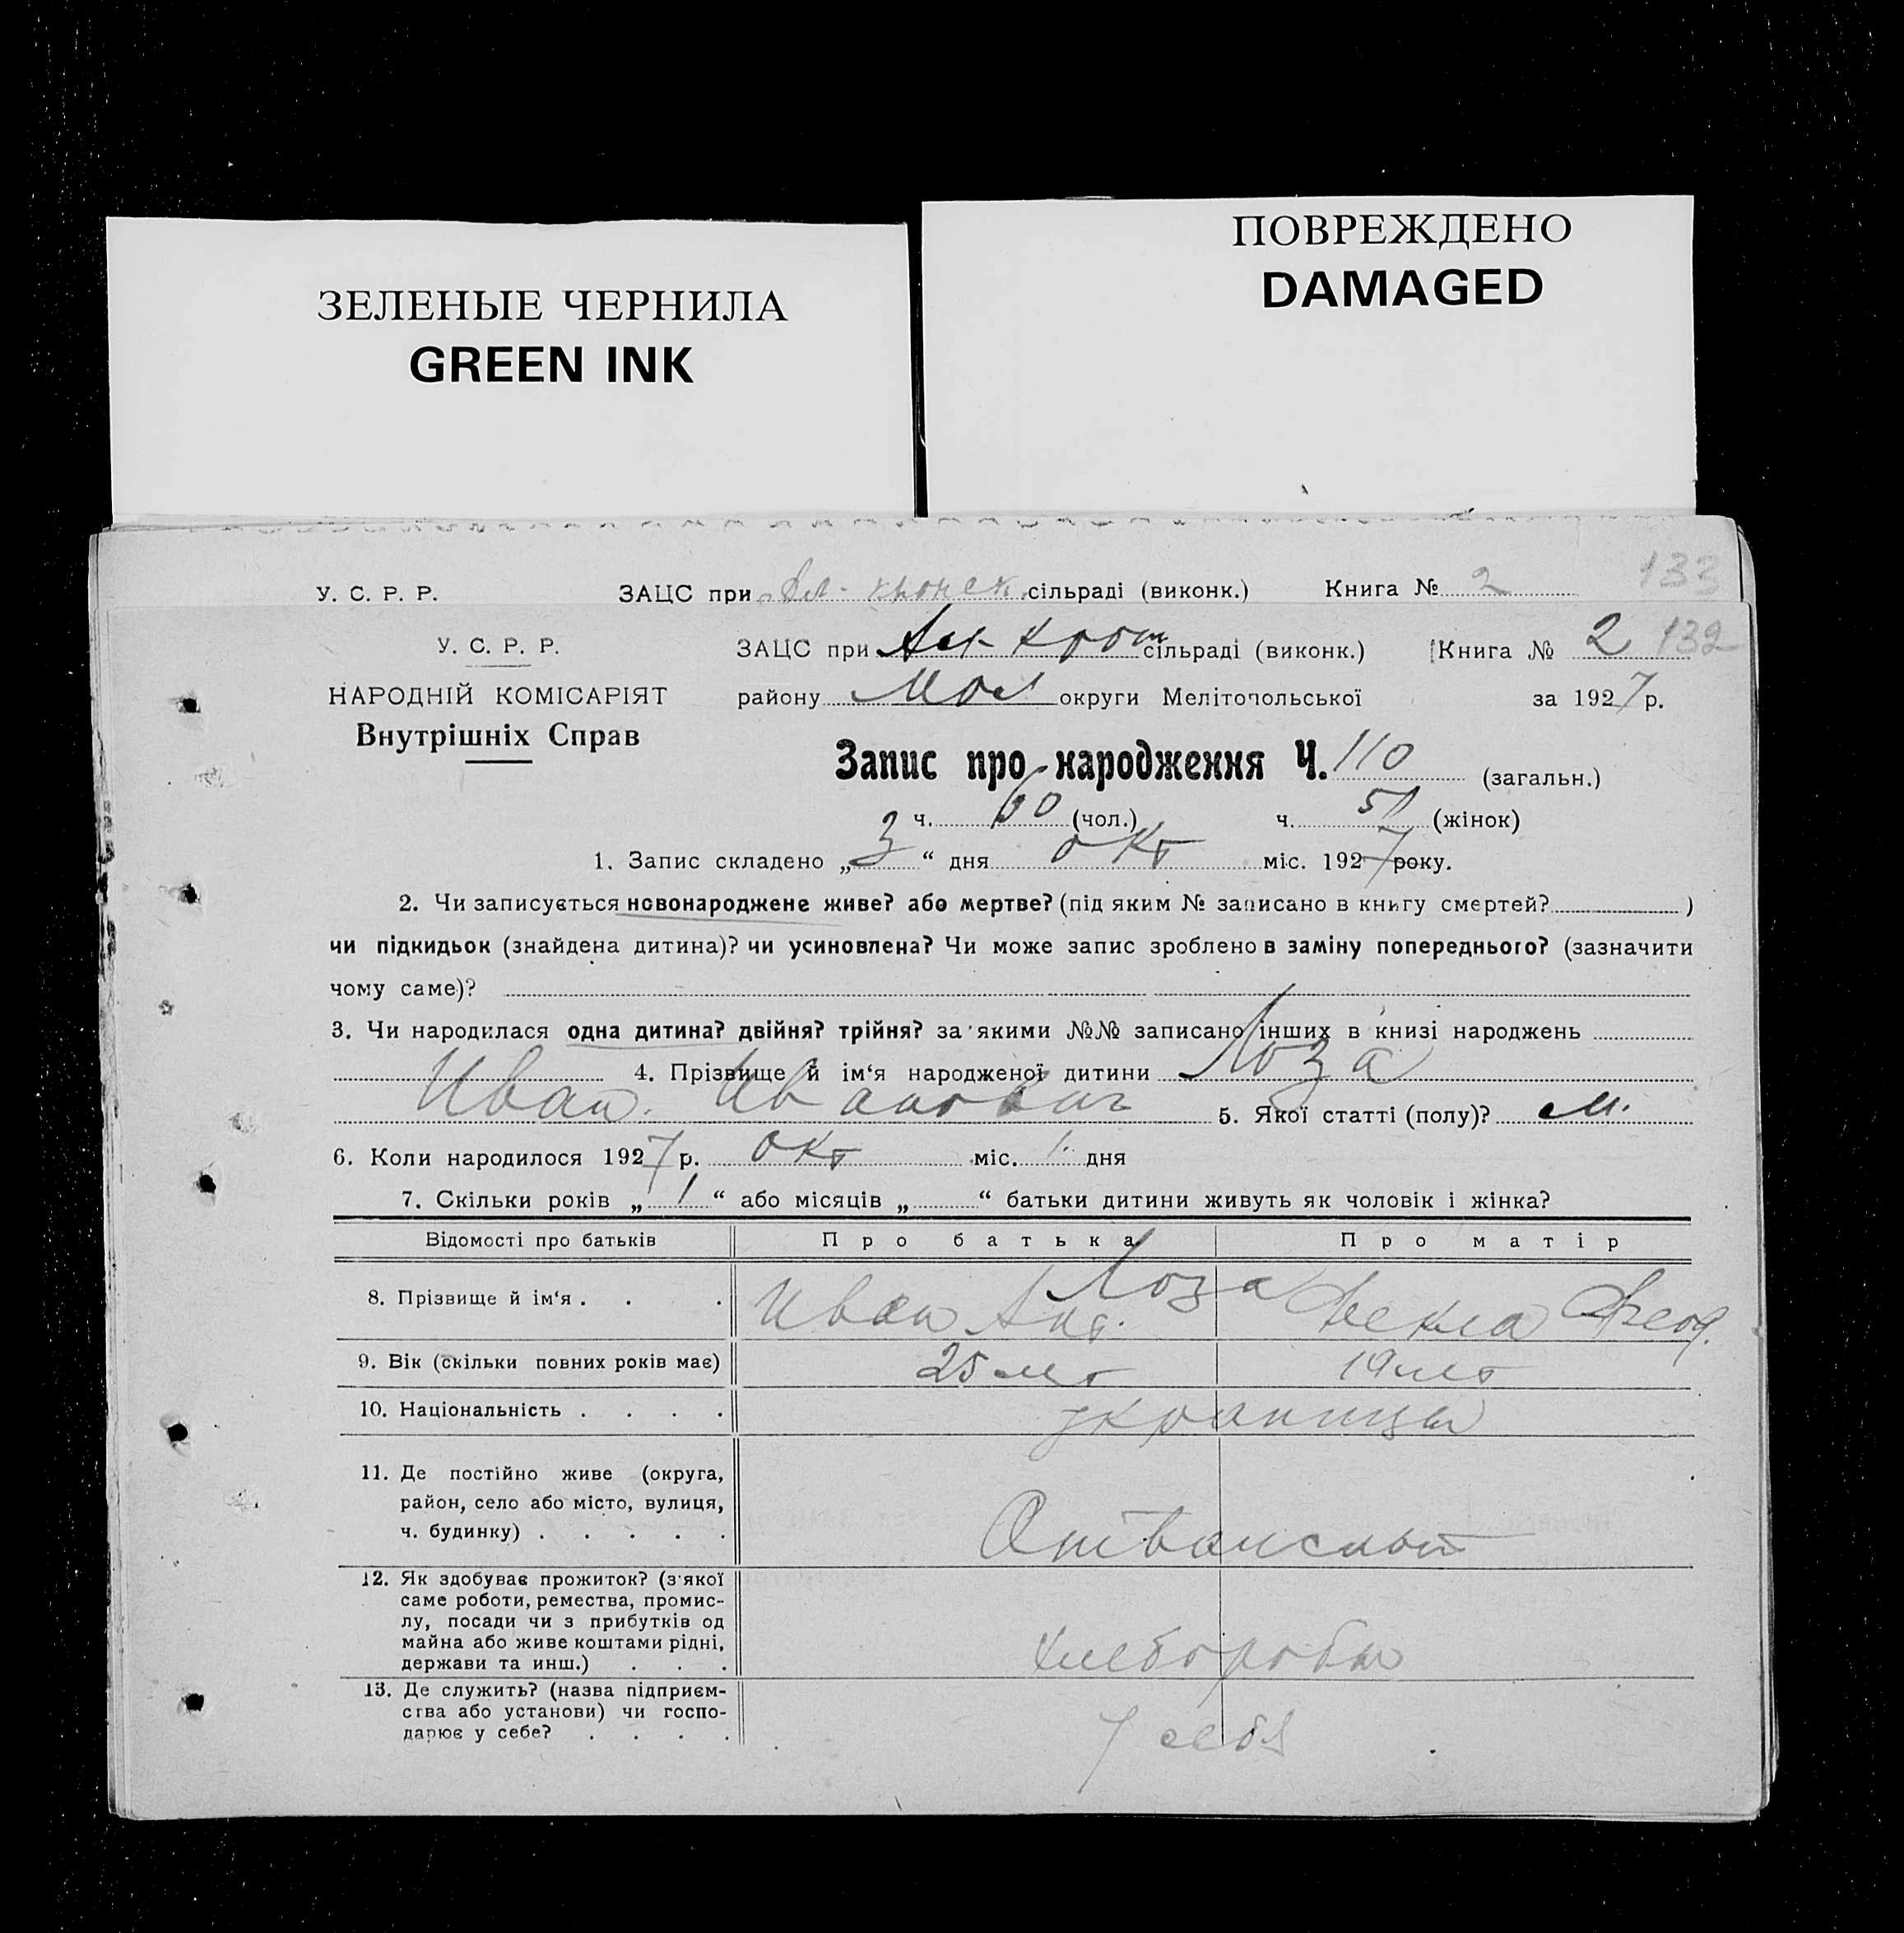 ЗЕЛЕНЫЕ ЧЕРНИЛА
GREEN INK
ПОВРЕЖДЕНО
DAMAGED
У. С. Р. Р. ЗАЦС при сільраді (виконк.) Книга № 2 133
У. С. Р. Р. ЗАЦС при сільраді (виконк.) Книга № 2 132
НАРОДНІЙ КОМІСАРІЯТ району округи Мелітопольської за 1927 р.
Внутрішніх Справ
Запис про народження Ч. 110 (загальн.)
ч. 60 (чол.) ч. (жінок)
1. Запис складено „3“ дня окт міс. 1927 року.
2. Чи записується новонароджене живе? або мертве? (під яким № записано в книгу смертей? )
чи підкидьок (знайдена дитина)? чи усиновлена? Чи може запис зроблено в заміну попереднього? (зазначити
чому саме)?
3. Чи народилася одна дитина? двійня? трійня? за якими №№ записано інших в книзі народжень
4. Прізвище й ім‘я народженої дитини Лоза
Иван Иванович 5. Якої статті (полу)? м.
6. Коли народилося 1927 р. окт міс. 1 дня
7. Скільки років „1“ або місяців „ “ батьки дитини живуть як чоловік і жінка?
Відомості про батьків Про батька Про матір
Лоза
8. Прізвище й ім‘я . . . Иван Ант. Фекла Феод.
9. Вік (скільки повних років має) 25 лет 19 лет
10. Національність . . . . украинцы
11. Де постійно живе (округа,
район, село або місто, вулиця,
ч. будинку) . . . . .
12. Як здобуває прожиток? (з якої
саме роботи, ремества, промис-
лу, посади чи з прибутків од
майна або живе коштами рідні,
держави та инш.) . . . хлеборобы
13. Де служить? (назва підприєм-
ства або установи) чи госпо-
дарює у себе? . . . . У себя